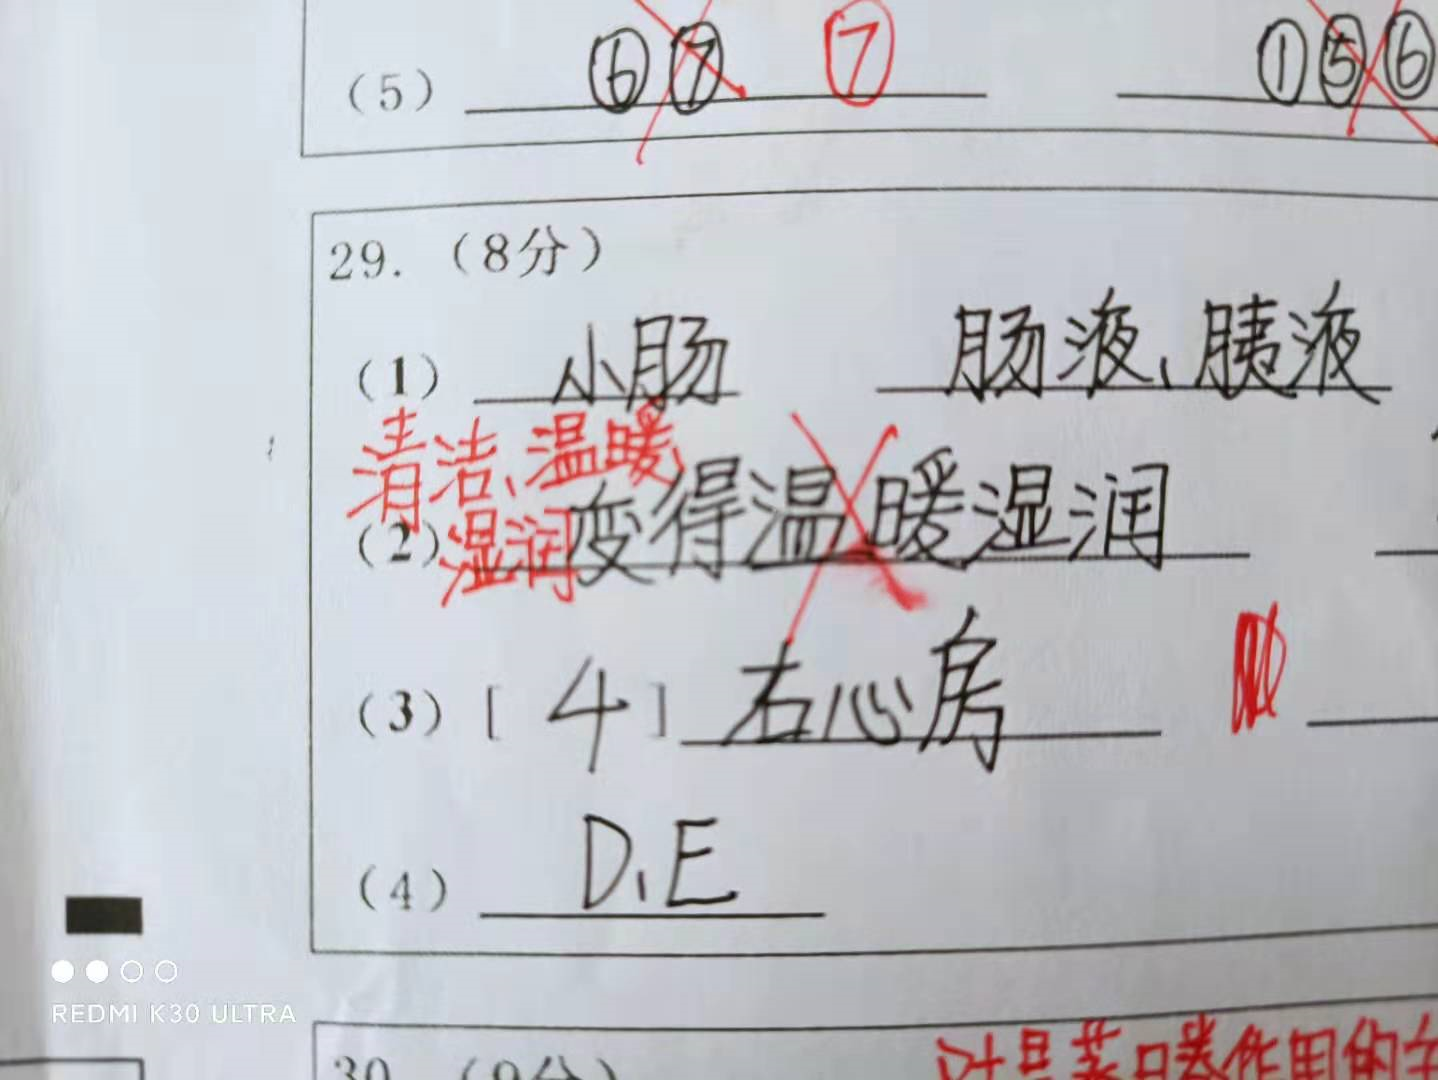 (5) ⑥⑦ ⑦ ①⑤⑥
29. (8分)
(1) 小肠 肠液、胰液
清洁、温暖
(2) 湿润 变得温暖湿润
(3) [ 4 ] 右心房
(4) D、E
REDMI K30 ULTRA
30. (9分)